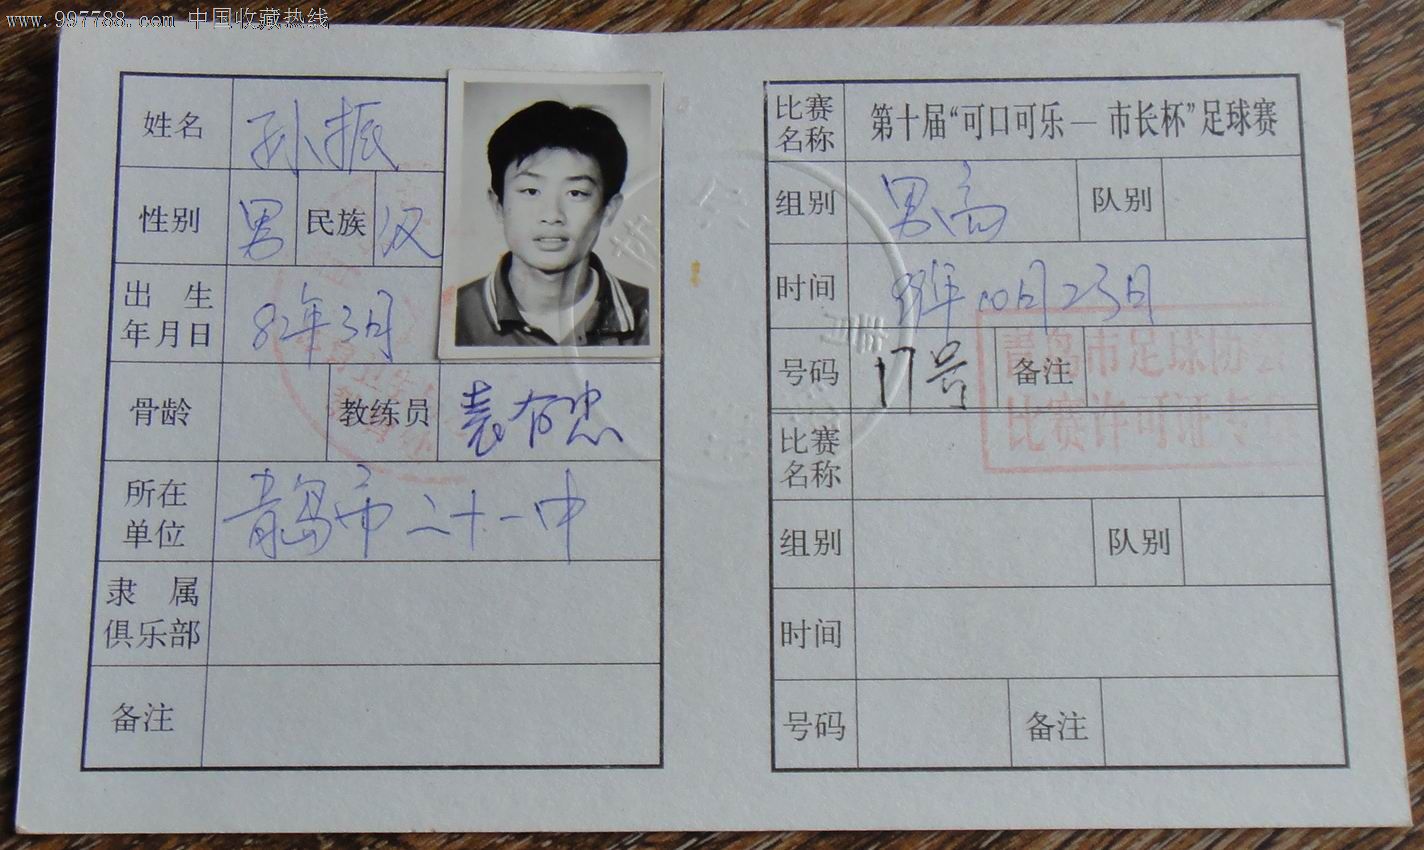 www.997788.com 中国收藏热线
姓名 孙振
性别 男 民族 汉
出生年月日 82年3月
骨龄 教练员 袁有忠
所在单位 青岛市二十一中
隶属俱乐部
备注
比赛名称 第十届“可口可乐—市长杯”足球赛
组别 男高 队别
时间 年10月23日
号码 17号 备注
青岛市足球协会
比赛许可证专
比赛名称
组别 队别
时间
号码 备注